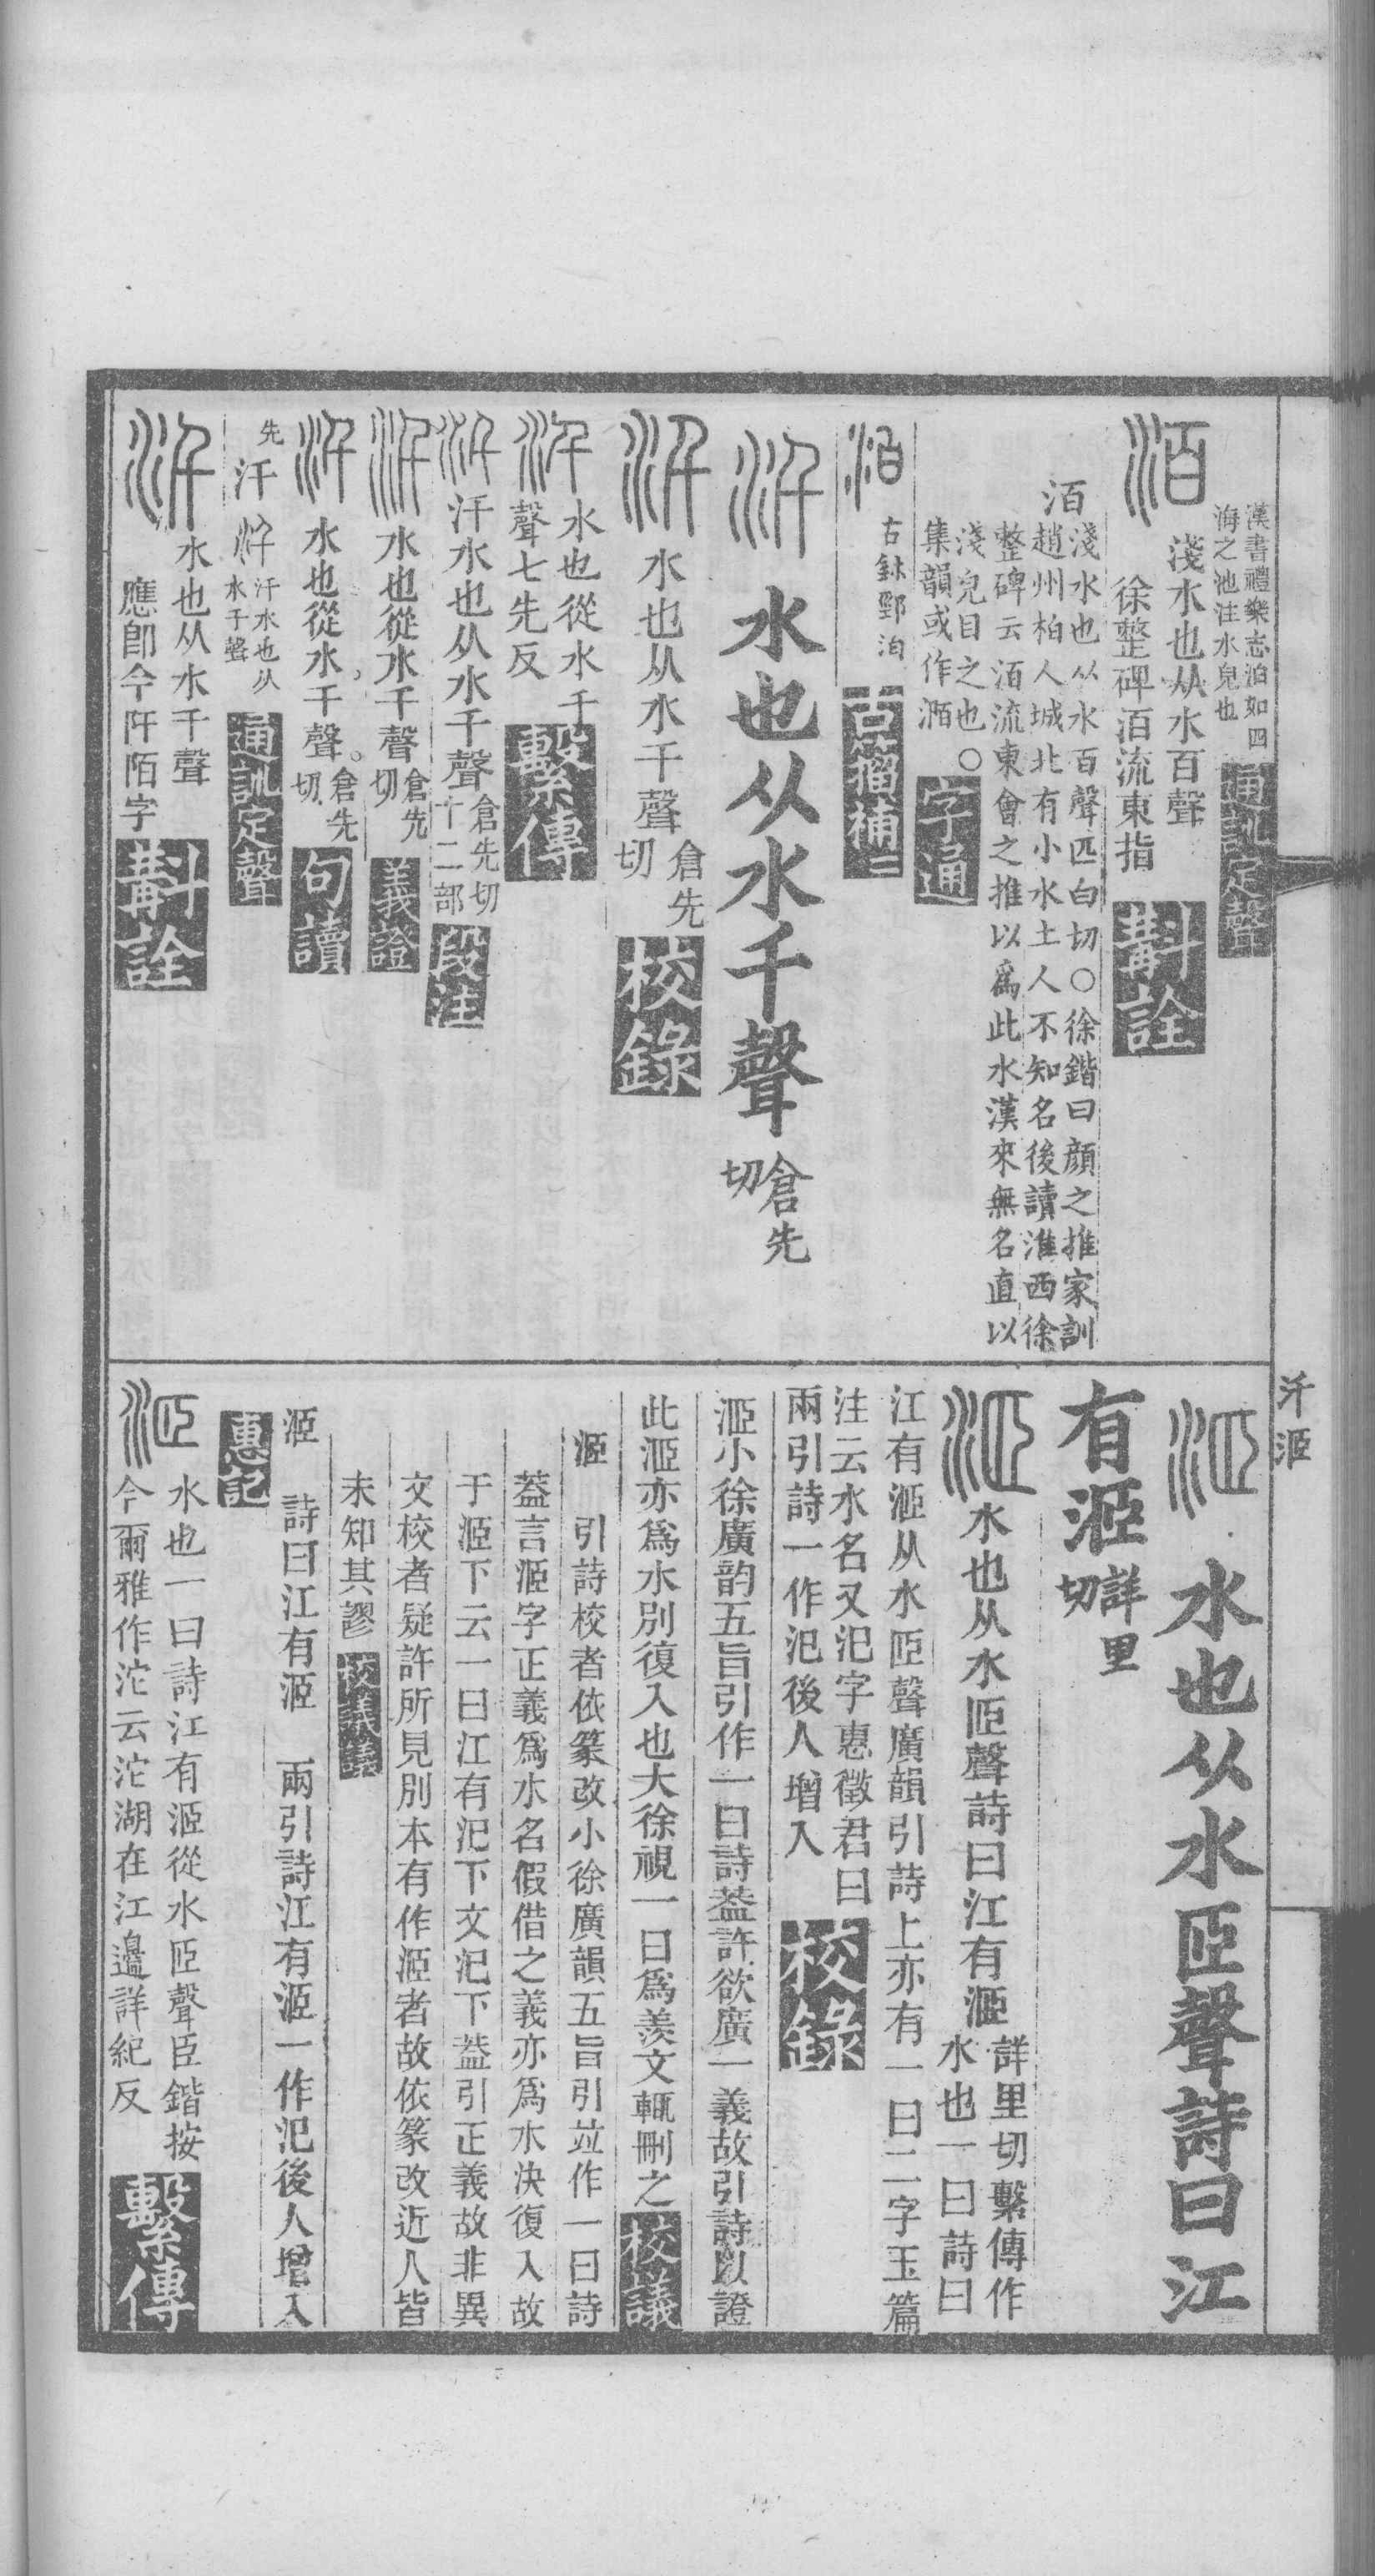 漢書禮樂志泊如四
海之池注水皃也
通訓定聲
洦
淺水也从水百聲
徐整碑洦流東指
斠詮
洦
淺水也从水百聲匹白切○徐鍇曰顏之推家訓
趙州柏人城北有小水土人不知名後讀淮西徐
整碑云洦流東會之推以爲此水漢來無名直以
淺皃目之也○
集韻或作㴞
字通
洦
古鉢鄄洦
古籀補二
汘
水也从水千聲
倉先
切
汘
水也从水千聲
倉先
切
校錄
汘
水也從水千
聲七先反
繫傳
汘
汘水也从水千聲
倉先切
十二部
段注
汘
水也從水千聲
倉先
切
義證
汘
水也從水千聲。
倉先
切
句讀
先
汘
汘
汘水也从
水千聲
通訓定聲
汘
水也从水千聲
應卽今阡陌字
斠詮
汘洍
洍
水也从水𦣞聲詩曰江
有洍
詳里
切
洍
水也从水𦣞聲詩曰江有洍
詳里切繫傳作
水也一曰詩曰
江有洍从水𦣞聲廣韻引詩上亦有一曰二字玉篇
注云水名又汜字惠徵君曰
兩引詩一作汜後人增入
校錄
洍小徐廣韵五旨引作一曰詩葢許欲廣一義故引詩以證
此洍亦爲水別復入也大徐視一曰爲羨文輒刪之
校議
洍
引詩校者依篆改小徐廣韻五旨引竝作一曰詩
葢言洍字正義爲水名假借之義亦爲水決復入故
于洍下云一曰江有汜下文汜下葢引正義故非異
文校者疑許所見別本有作洍者故依篆改近人皆
未知其謬
校議議
洍
詩曰江有洍
兩引詩江有洍一作汜後人增入
惠記
洍
水也一曰詩江有洍從水𦣞聲臣鍇按
今爾雅作沱云沱湖在江邊詳紀反
繫傳